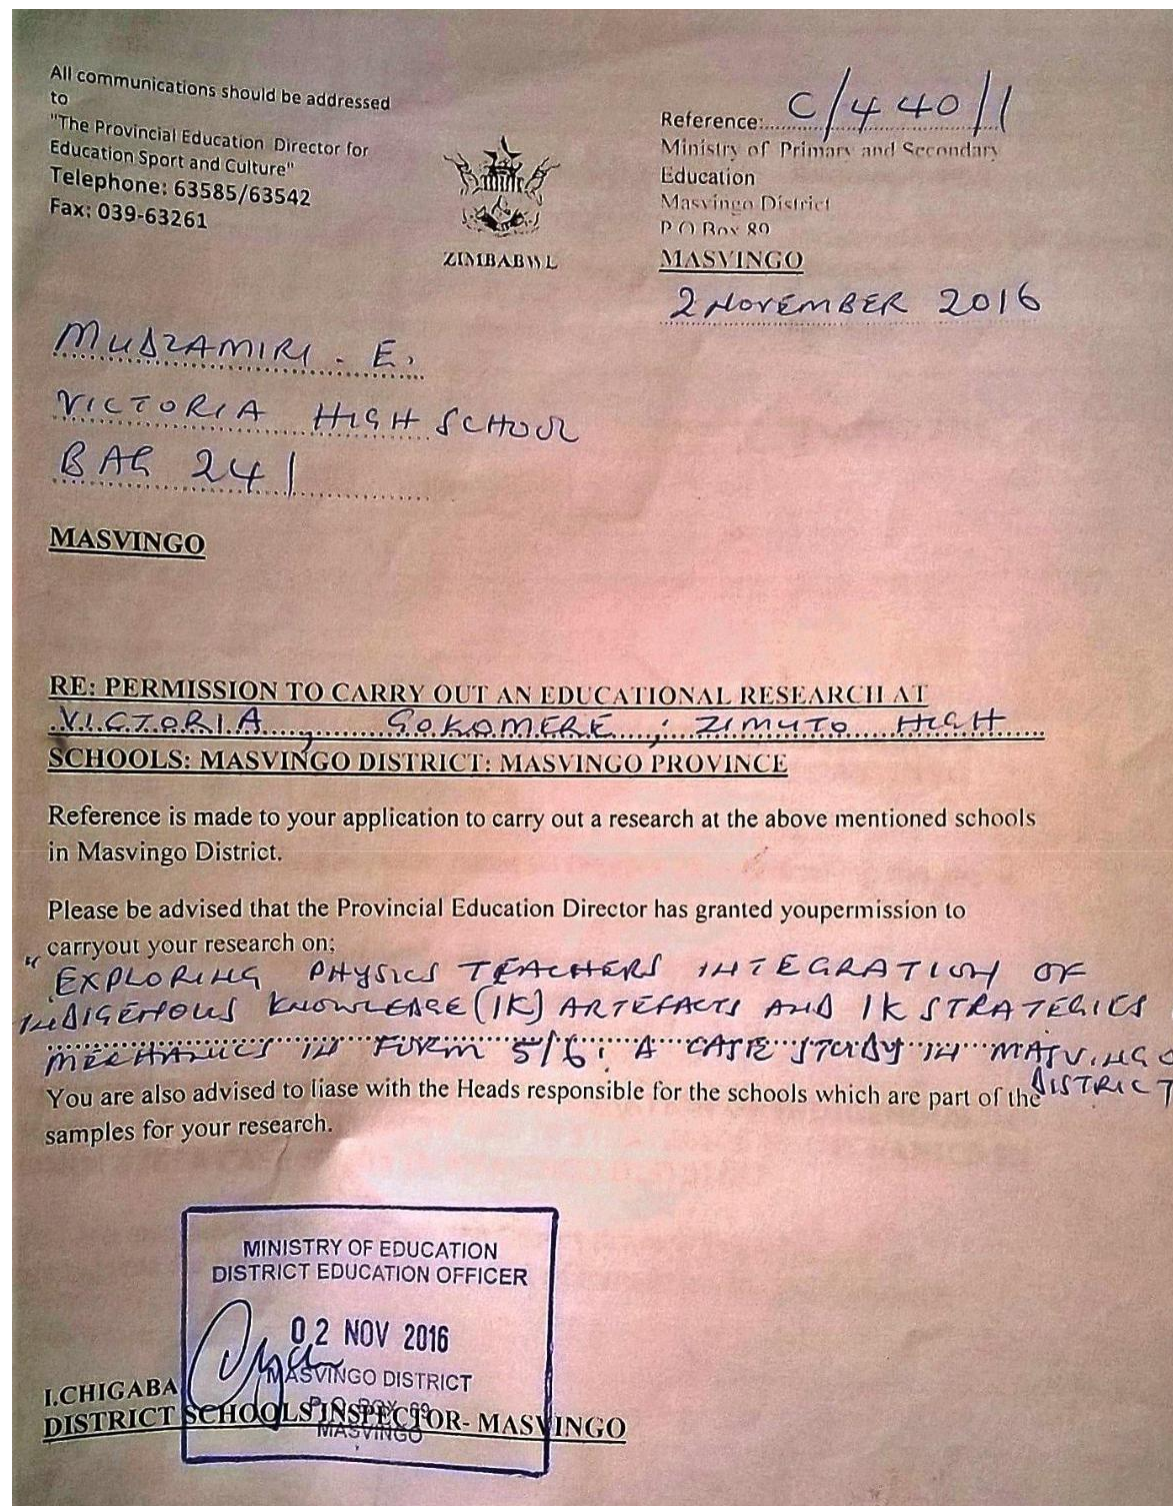 All communications should be addressed
to
"The Provincial Education Director for
Education Sport and Culture"
Telephone: 63585/63542
Fax: 039-63261
ZIMBABWE
Reference: C/440/1
Ministry of Primary and Secondary
Education
Masvingo District
P O Box 89
MASVINGO
2 NOVEMBER 2016
MUDZAMIRI - E.
VICTORIA HIGH SCHOOL
BAG 241
MASVINGO
RE: PERMISSION TO CARRY OUT AN EDUCATIONAL RESEARCH AT
VICTORIA, GOKOMERE; ZIMUTO HIGH
SCHOOLS: MASVINGO DISTRICT: MASVINGO PROVINCE
Reference is made to your application to carry out a research at the above mentioned schools
in Masvingo District.
Please be advised that the Provincial Education Director has granted youpermission to
carryout your research on;
"EXPLORING PHYSICS TEACHERS INTEGRATION OF
INDIGENOUS KNOWLEDGE (IK) ARTEFACTS AND IK STRATEGIES
MECHANICS IN FORM 5/6: A CASE STUDY IN MASVINGO
DISTRICT
You are also advised to liase with the Heads responsible for the schools which are part of the
samples for your research.
MINISTRY OF EDUCATION
DISTRICT EDUCATION OFFICER
02 NOV 2016
MASVINGO DISTRICT
P.O. BOX 89
MASVINGO
I.CHIGABA
DISTRICT SCHOOLS INSPECTOR- MASVINGO